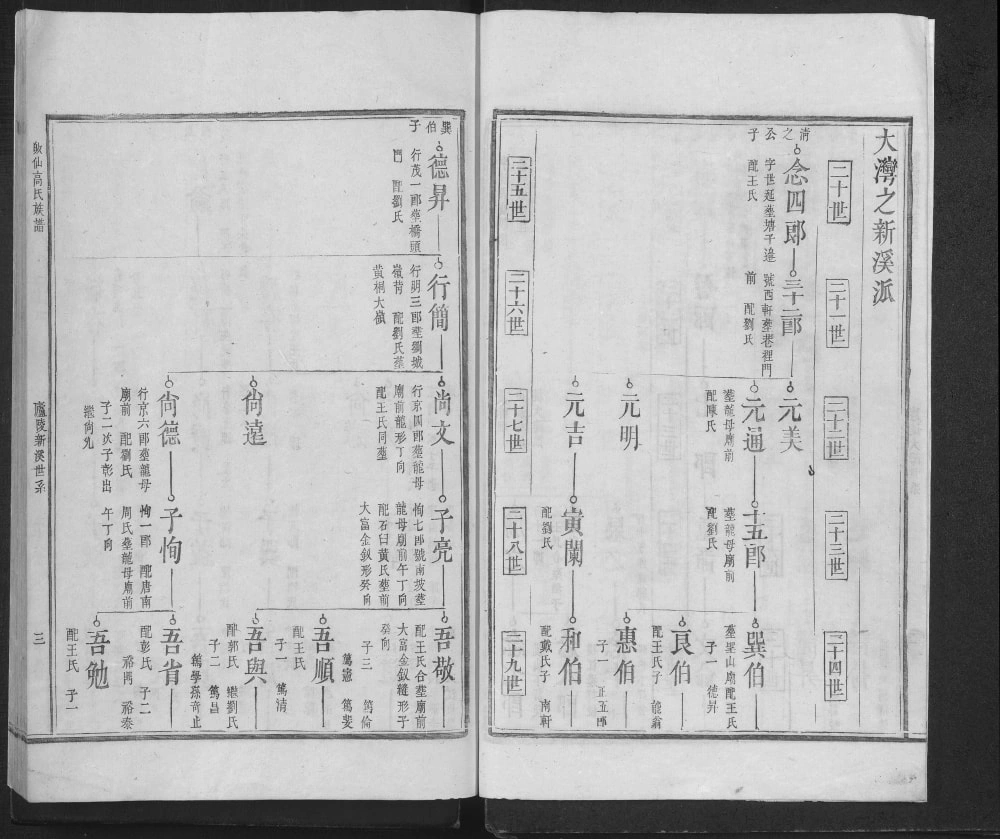 大灣之新溪派
二十世
二十一世
二十二世
二十三世
二十四世
清之公子
念四郎
字世延墓塘千邉
配王氏
三十二郎
號西軒墓巷裡門
前 配劉氏
元美
元通
墓龍母廟前
配陳氏
十五郎
墓龍母廟前
配劉氏
巽伯
墓里山廟配王氏
子一 德昇
良伯
配王氏子 能翁
元明
惠伯
子一 正五郎
元吉
寅蘭
配劉氏
和伯
配戴氏子 南軒
二十五世
二十六世
二十七世
二十八世
二十九世
巽伯子
德昇
行茂一郎墓橋頭
門 配劉氏
行簡
行明三郎墓劉城
嶺背 配劉氏墓
黃桐大嶺
尙文
行京四郎墓龍母
廟前龍形丁向
配王氏同墓
子亮
恂七郎號南坡墓
龍母廟前午丁向
配石臼黃氏墓前
大富金釵形癸向
吾敬
配王氏合墓廟前
大富金釵縫形子
癸向
子三 篤倫
篤憲 篤斐
吾順
配王氏
子一 篤清
尙逵
吾與
配郭氏 繼劉氏
子二 篤昌
篤學孫奇止
尙德
行京六郎墓龍母
廟前 配劉氏
子二次子彭出
繼尙先
子恂
恂一郎 配唐南
周氏墓龍母廟前
午丁向
吾省
配彭氏 子二
裕两 裕泰
吾勉
配王氏 子一
高氏族譜
廬陵新溪世系
三